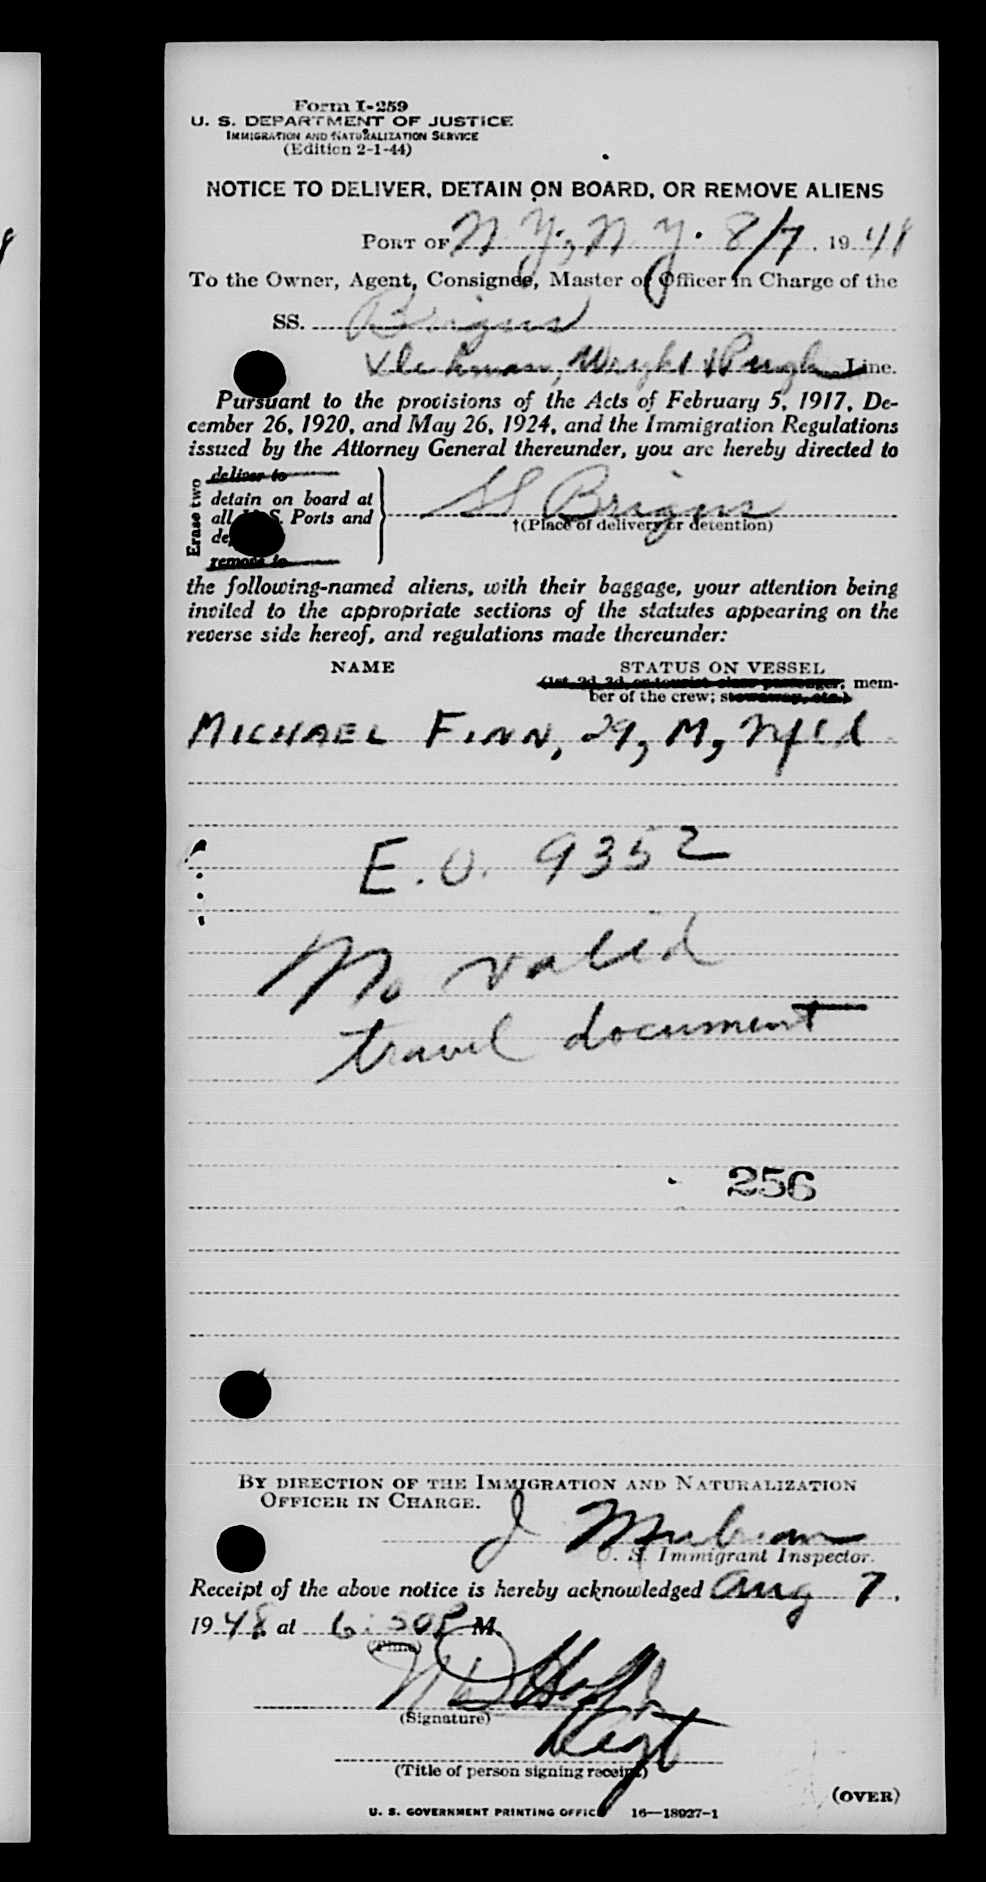 Form I-259
U. S. DEPARTMENT OF JUSTICE
IMMIGRATION AND NATURALIZATION SERVICE
(Edition 2-1-44)
NOTICE TO DELIVER, DETAIN ON BOARD, OR REMOVE ALIENS
PORT OF N. Y., N. Y. 8/7, 1948
To the Owner, Agent, Consignee, Master or Officer in Charge of the
SS. Brigus
Wright & Pugh Line.
Pursuant to the provisions of the Acts of February 5, 1917, De-
cember 26, 1920, and May 26, 1924, and the Immigration Regulations
issued by the Attorney General thereunder, you are hereby directed to
Erase two
deliver to
detain on board at
all U. S. Ports and
remove to
SS Brigus
†(Place of delivery or detention)
the following-named aliens, with their baggage, your attention being
invited to the appropriate sections of the statutes appearing on the
reverse side hereof, and regulations made thereunder:
NAME STATUS ON VESSEL
(1st, 2d, 3d, or tourist class passenger; mem-
ber of the crew; stowaway, etc.)
MICHAEL FINN, 29, M, Nfld
E.O. 9352
No valid
travel document
256
BY DIRECTION OF THE IMMIGRATION AND NATURALIZATION
OFFICER IN CHARGE.
J
U. S. Immigrant Inspector.
Receipt of the above notice is hereby acknowledged Aug 7,
1948 at 6:30P M.
(Time)
(Signature)
(Title of person signing receipt)
(OVER)
U. S. GOVERNMENT PRINTING OFFICE 16—18927-1